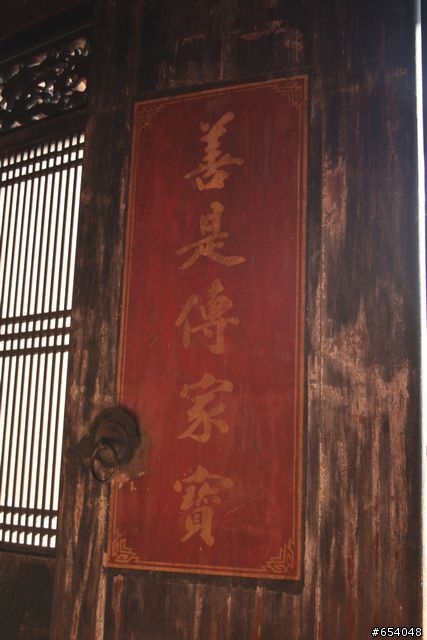 善是傳家寶
#654048